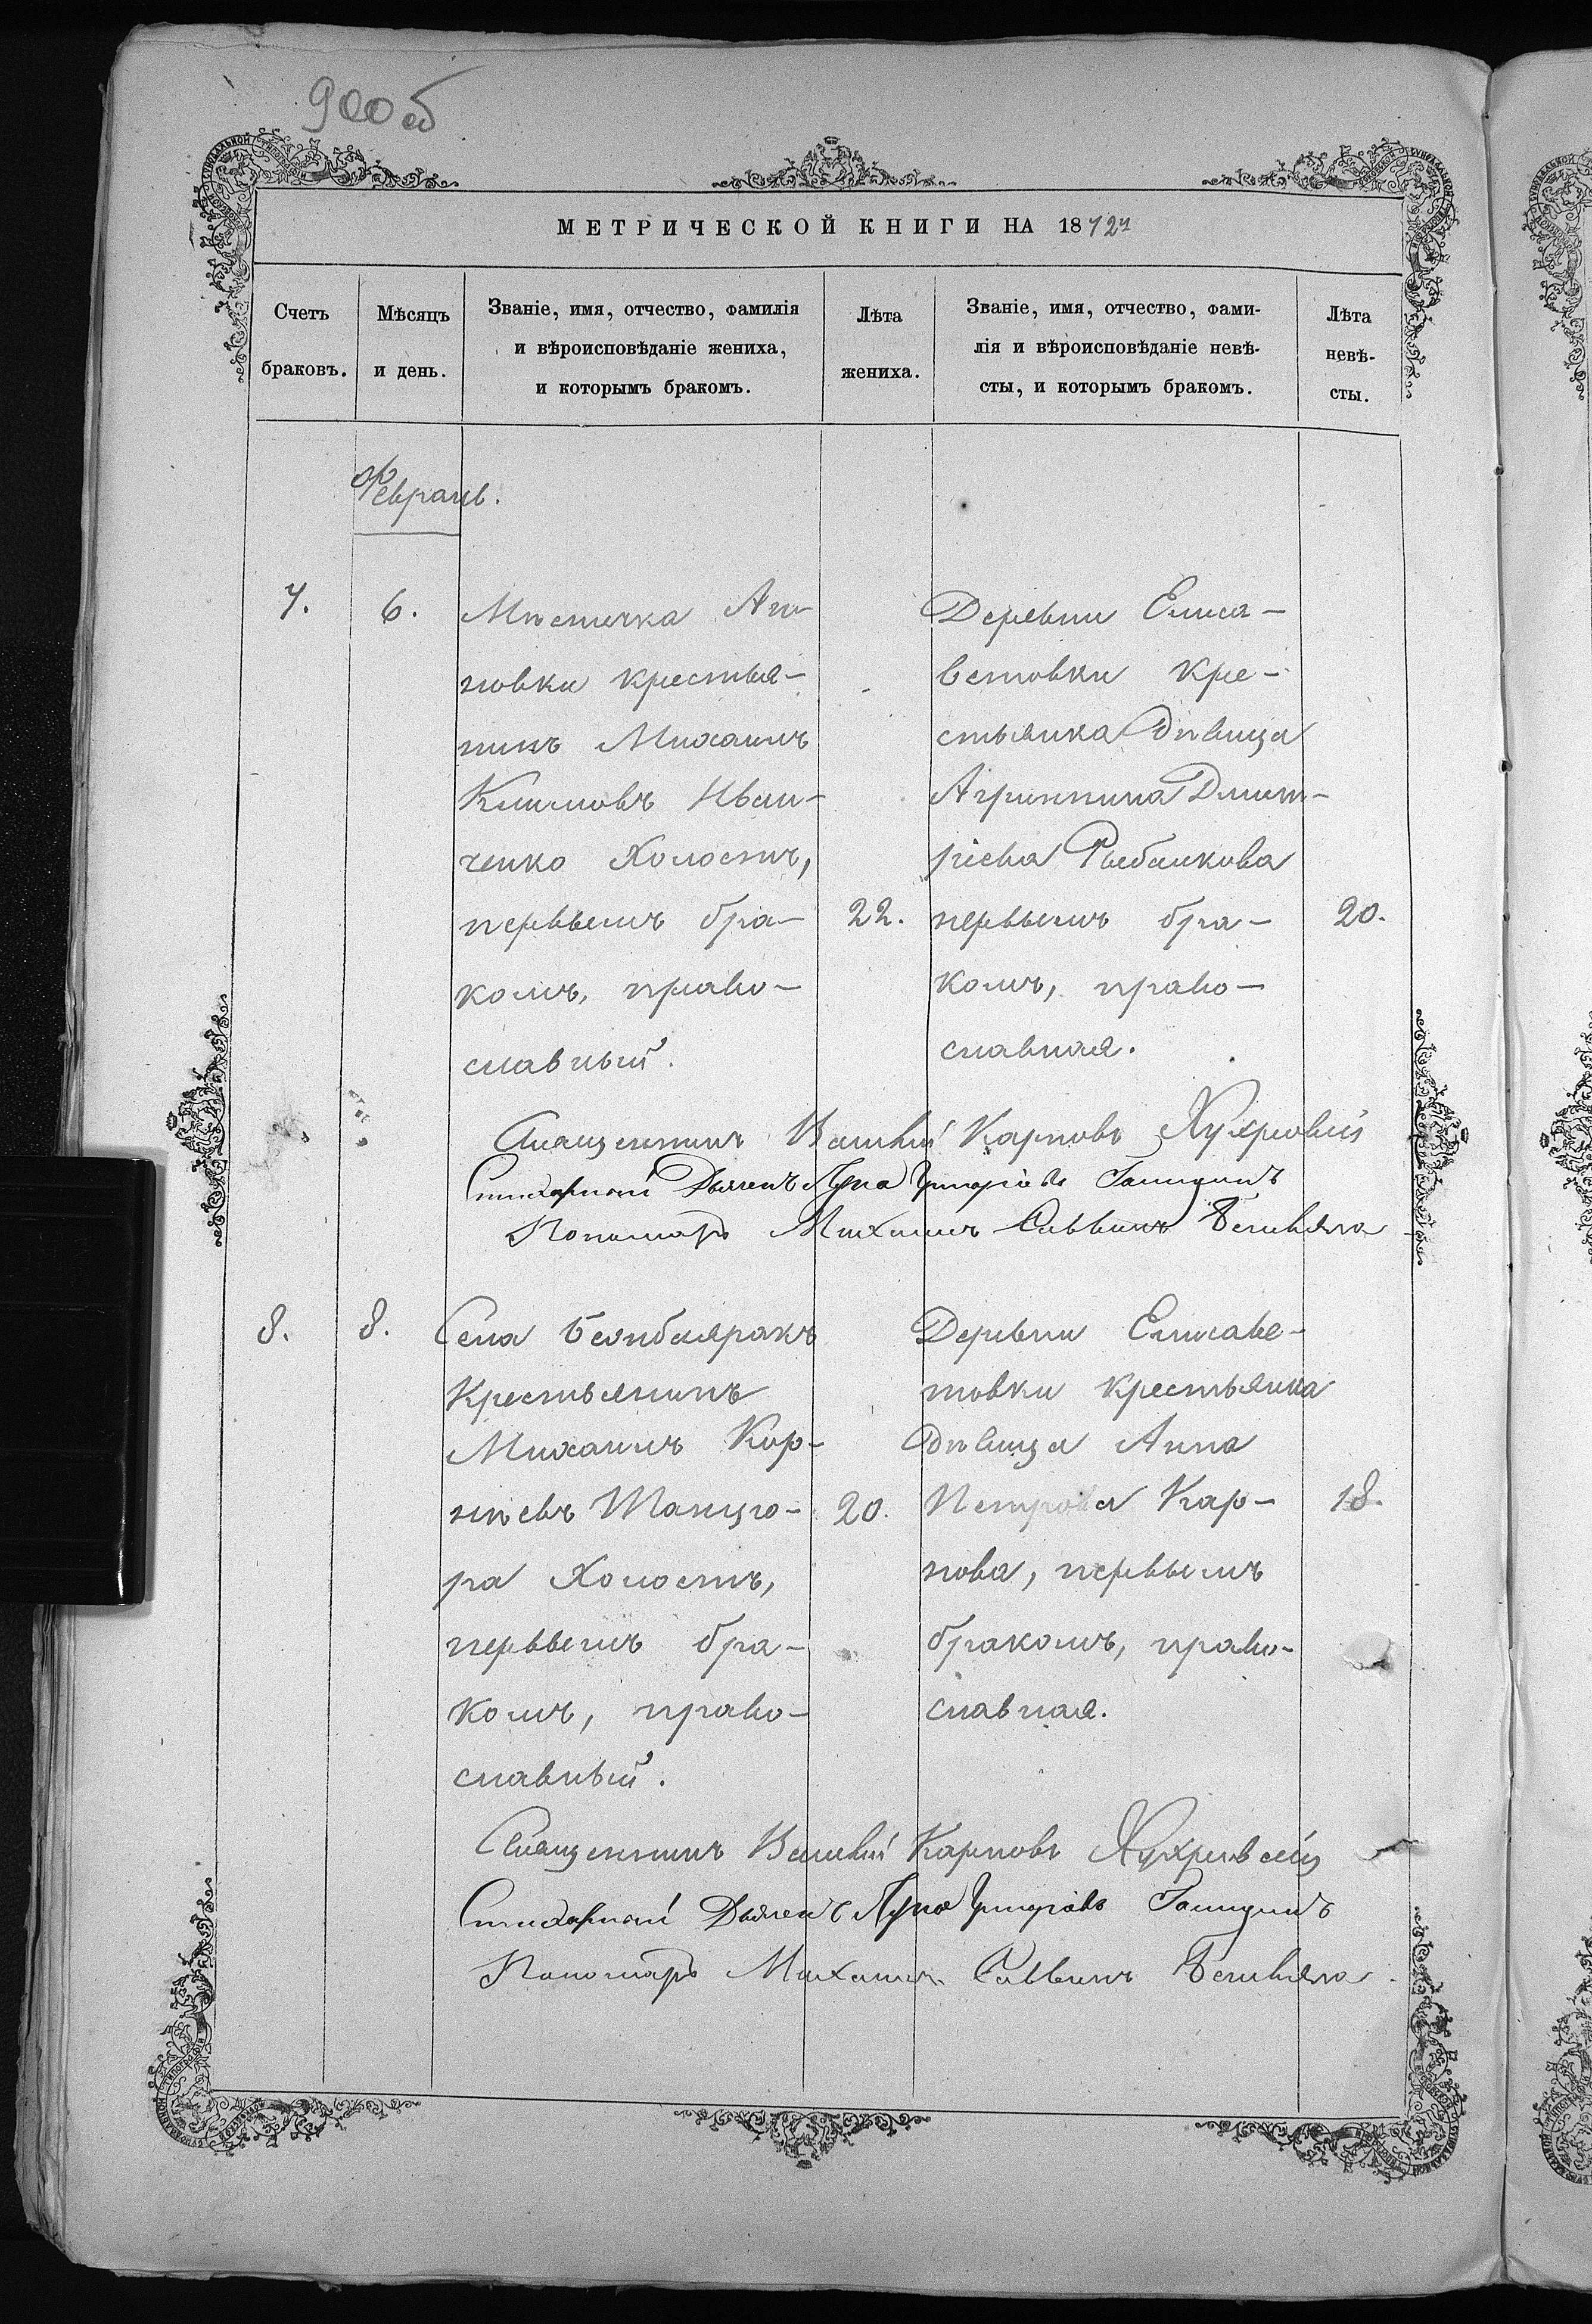 900б
МЕТРИЧЕСКОЙ КНИГИ НА 1872й
Счетъ браковъ.
Мѣсяцъ и день.
Званіе, имя, отчество, фамилія
и вѣроисповѣданіе жениха,
и которымъ бракомъ.
Лѣта жениха.
Званіе, имя, отчество, фами-
лія и вѣроисповѣданіе невѣ-
сты, и которымъ бракомъ.
Лѣта
невѣ-
сты.
Февраль.
7.
6.
Мѣстечка Ан-
новки крестья-
нинъ Михаилъ
Климовъ Иван-
ченко Холостъ,
первымъ бра-
комъ, право-
славный.
22.
Деревни Елиса-
ветовки кре-
стьянка дѣвица
Агриппина Дмит-
ріева Рыбалкова
первымъ бра-
комъ, право-
славная.
20.
Священникъ Василій Карповъ
Стихарный Дьячекъ Лука Григорьевъ
Пономарь Михаилъ Саввинъ
8.
8.
Села Бешбаяракъ
Крестьянинъ
Михаилъ Кор-
нѣевъ Танцю-
ра Холостъ,
первымъ бра-
комъ, право-
славный.
20.
Деревни Елисаве-
товки крестьянка
дѣвица Анна
Петрова Кар-
пова, первымъ
бракомъ, право-
славная.
18.
Священникъ Василій Карповъ
Стихарный Дьячекъ Лука Григорьевъ
Пономарь Михаилъ Саввинъ